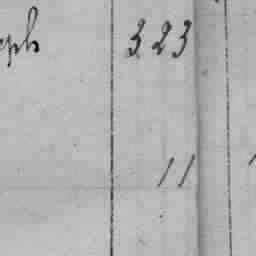 eph 323
11